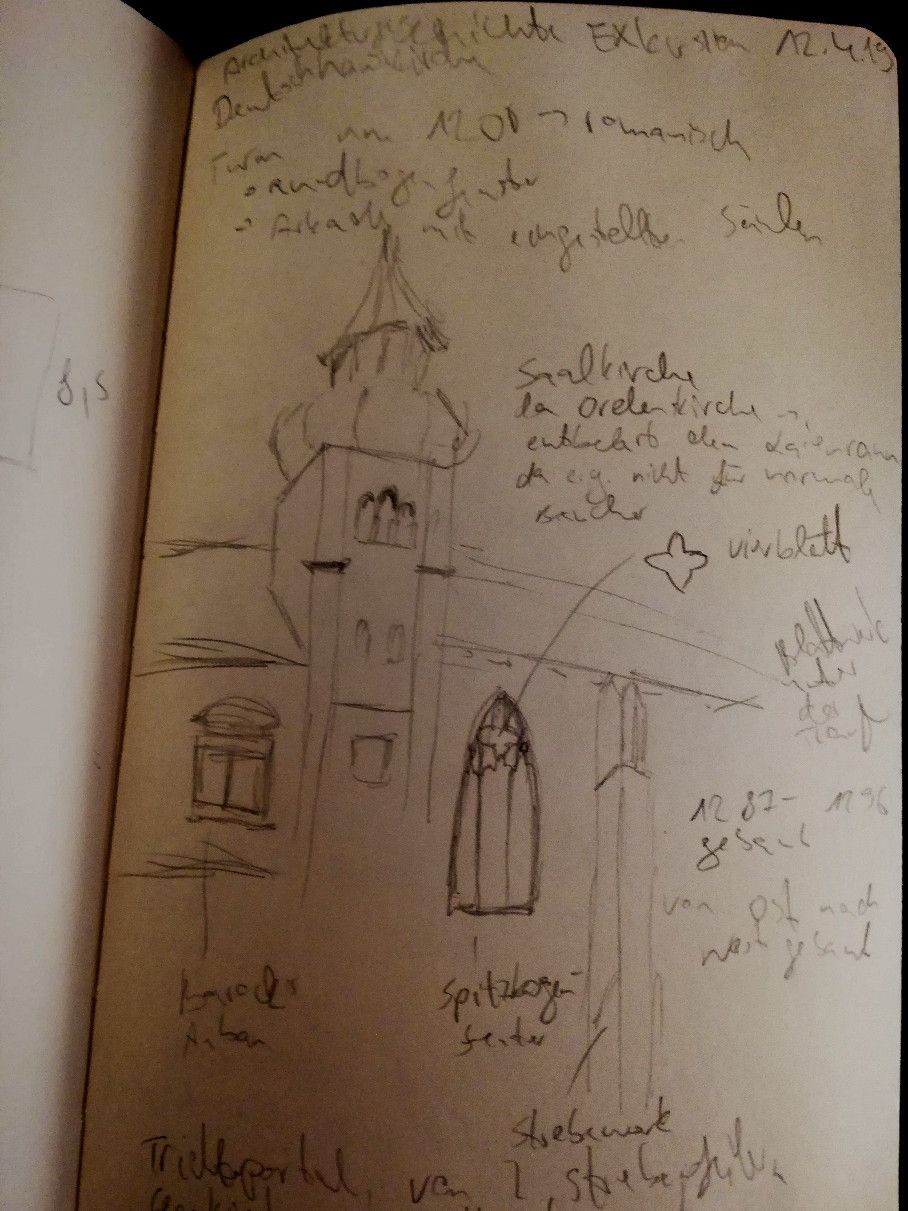 Architekturgeschichte Exkursion 12.4.19
Deutschhauskirche
Turm um 1200 → romanisch
Rundbogenfenster
→ Arkade mit eingestellten Säulen
8,5
Saalkirche
da Ordenskirche →
entbehrt dem Laienraum
da eig. nicht für normale
Besucher
Vierblatt
Blattwerk
unter
der
Trauf
1287- 1296
gebaut
von Ost nach
West gebaut
Barocker
Anbau
Spitzbogen-
fenster
Strebewerk
Trichterportal, von 2 Strebepfeilern